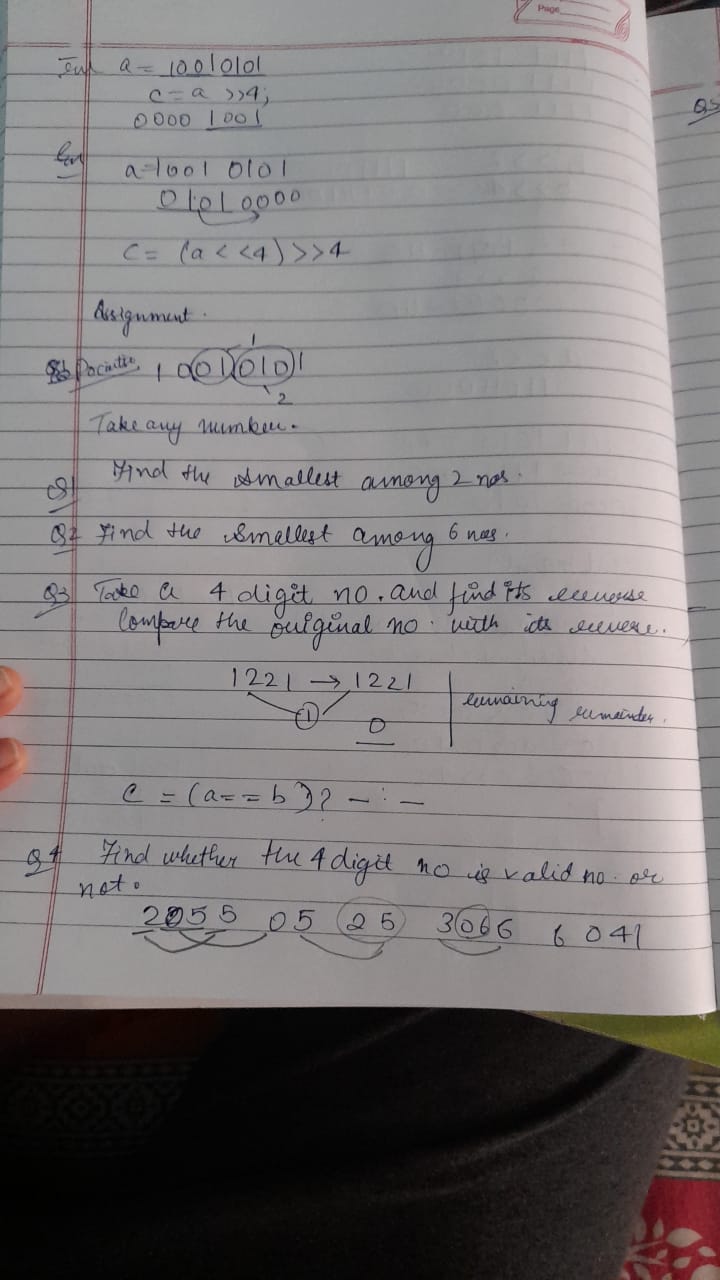 Page
a = 10010101
c = a >>4;
0000 1001
a = 1001 0101
0101 0000
c = (a < <4) >>4
Assignment.
1
1 0010101
2
Take any number.
Q1 Find the smallest among 2 nos.
Q2 Find the smallest among 6 nos.
Q3 Take a 4 digit no. and find its reverse
Compare the original no. with its revere.
1221 → 1221
1
0
remaining remainder.
c = (a = = b)? - : -
Q4 Find whether the 4 digit no is valid no. or
not.
2055 0525 3066 6041
Q5